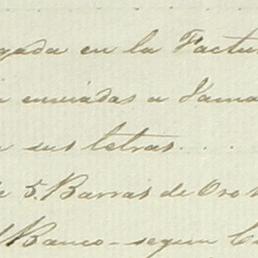 gada en la Factu
enviadas a Jama
sus letras . . .
5. Barras de Oro
Banco - segun